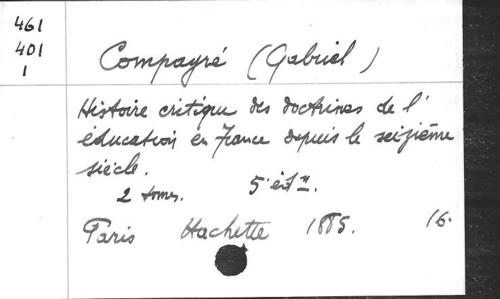 461
401
1
Compayré (Gabriel)
Histoire critique des doctrines de l'
éducation en France depuis le seizième
siècle.
2 tomes. 5 édn.
Paris Hachette 1885. 16.